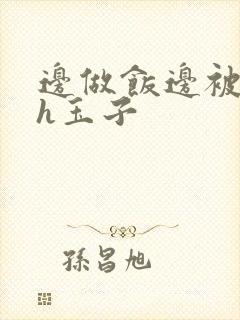 邊做飯邊被
h玉子
孫昌旭